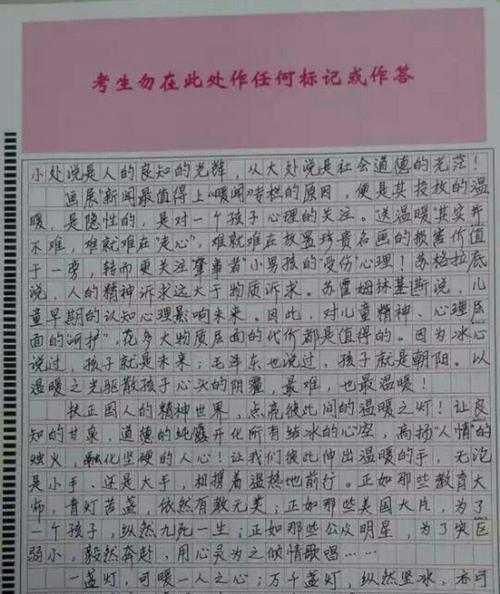 考生勿在此处作任何标记或作答
小处说是人的良知的光辉，从大处说是社会道德的光茫！
画展"新闻最值得上"暖闻"榜的原因，便是其投放的温
暖，是隐性的，是对一个孩子心理的关注。送温暖"其实并
不难，难就难在"走心"，难就难在放置珍贵名画的损害价值
于一旁，转而更关注肇事者"小男孩的"受伤"心理！苏格拉底
说，人的精神诉求远大于物质诉求。苏霍姆林基斯说，儿
童早期的认知心理影响未来。因此，对儿童精神、心理层
面的"呵护"，花多大物质层面的代价都是值得的。因为冰心
说过，孩子就是未来；毛泽东也说过，孩子就是朝阳。以
温暖之光驱散孩子心头的阴霾，最难，也最温暖！
扶正国人的精神世界，点亮彼此间的温暖之灯！让良
知的甘泉，道德的纯露开化所有结冰的心，高扬"人情"的
烛火，融化坚硬的人心！让我们彼此伸出温暖的手，无论
是小手、还是大手，相携着温热地前行。正如那些教育大
师，青灯苦盏，依然有教无类；正如那些美国大片，为了
一个孩子，纵然九死一生；正如那些公众明星，为了灾区
弱小，毅然奔赴，用心灵为之倾情歌唱……
一盏灯，可暖一人之心；万千盏灯，纵然坚冰，亦可